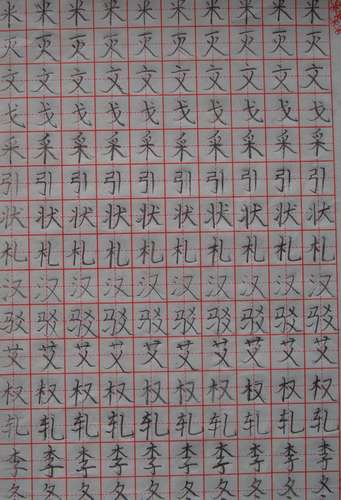 米米米米米米米米米米
灭灭灭灭灭灭灭灭灭灭
文文文文文文文文文文
戈戈戈戈戈戈戈戈戈戈
采采采采采采采采采采
引引引引引引引引引引
状状状状状状状状状状
札札札札札札札札札札
汉汉汉汉汉汉汉汉汉汉
驳驳驳驳驳驳驳驳驳驳
艾艾艾艾艾艾艾艾艾艾
权权权权权权权权权权
轧轧轧轧轧轧轧轧轧轧
李李李李李李李李李李
冬冬冬冬冬冬冬冬冬冬